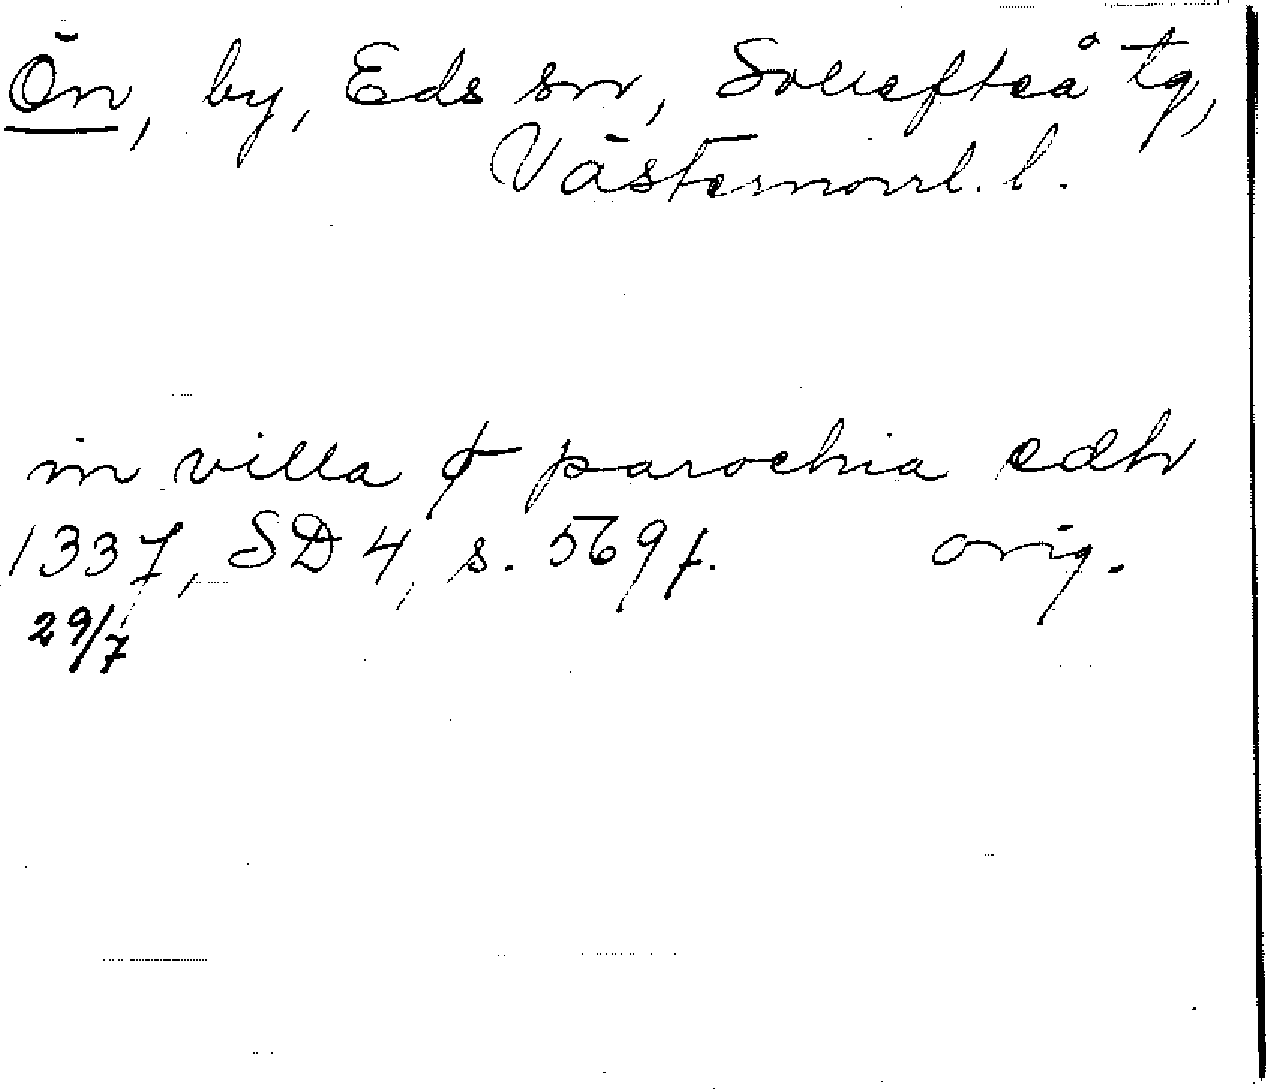 Ön, by, Eds sn, Sollefteå tg,
Västernorrl. l.
in villa ꝋ parochia edh
1337, SD 4, s. 569 f. orig.
29/7